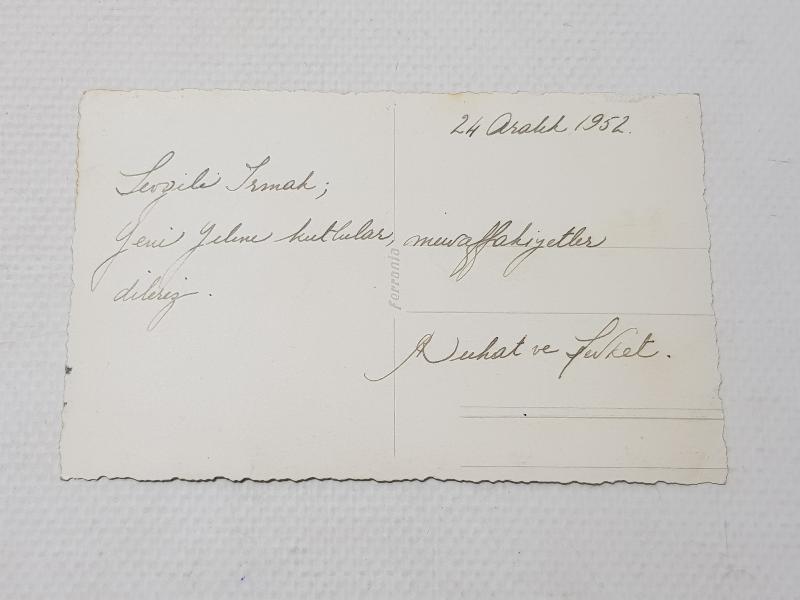 24 Aralık 1952.
Sevgili Irmak;
Yeni Yılını kutlular, muvaffakiyetler
dileriz.
Ferrania
ve Şevket.